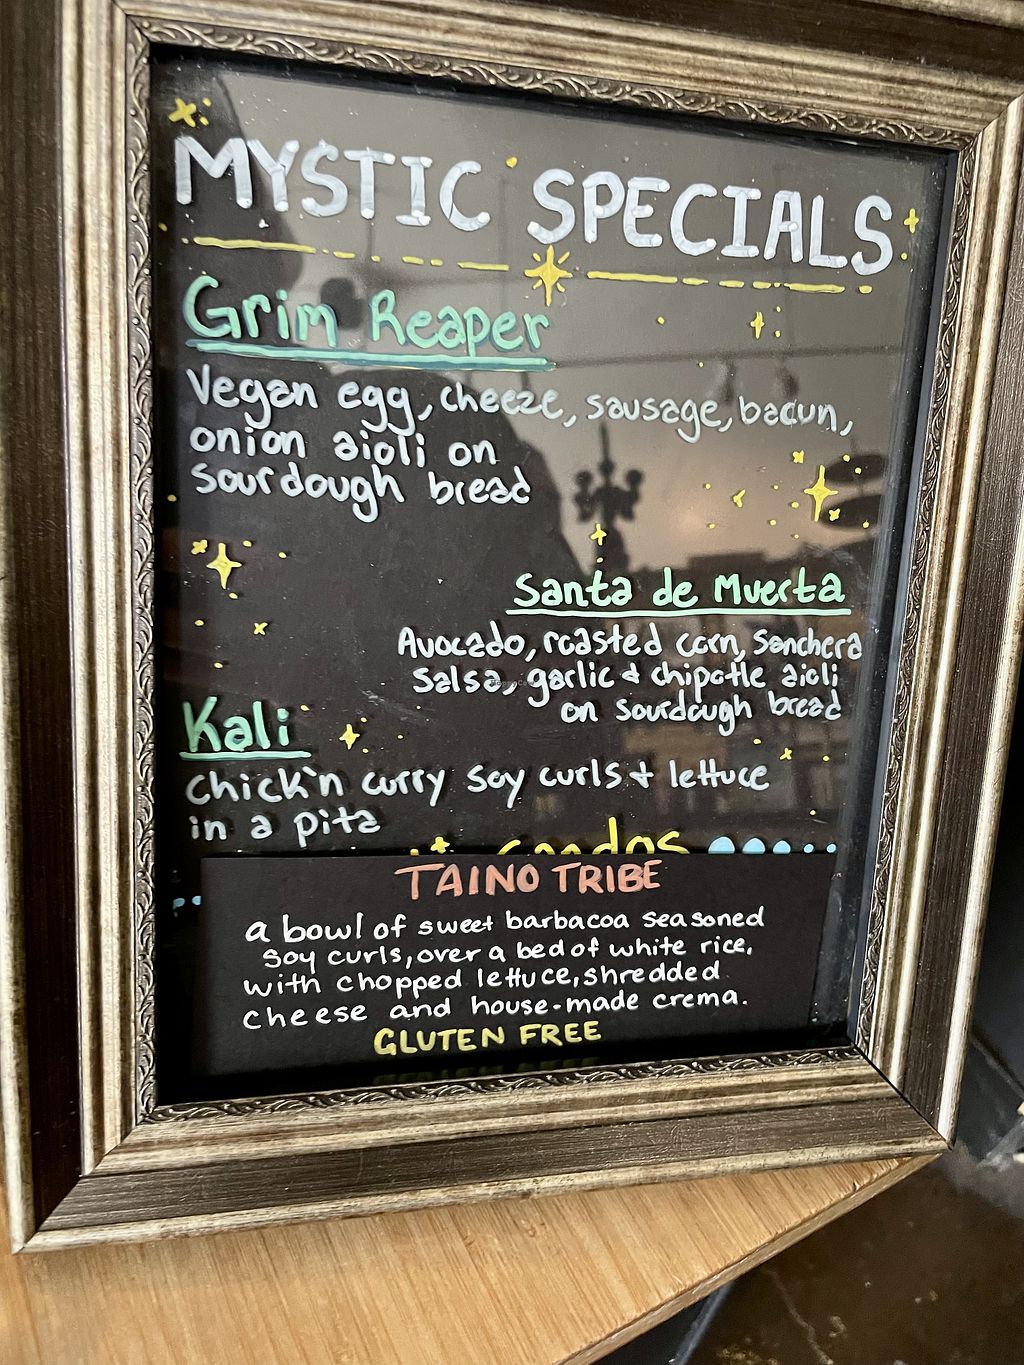 MYSTIC SPECIALS
Grim Reaper
Vegan egg, cheeze, sausage, bacun,
onion aioli on
sourdough bread
Santa de Muerta
Avocado, roasted corn, Sonchera
Salsa, garlic & chipotle aioli
on sourdough bread
Kali
Chick'n curry soy curls + lettuce
in a pita
TAINO TRIBE
a bowl of sweet barbacoa seasoned
soy curls, over a bed of white rice,
with chopped lettuce, shredded
cheese and house-made crema.
GLUTEN FREE